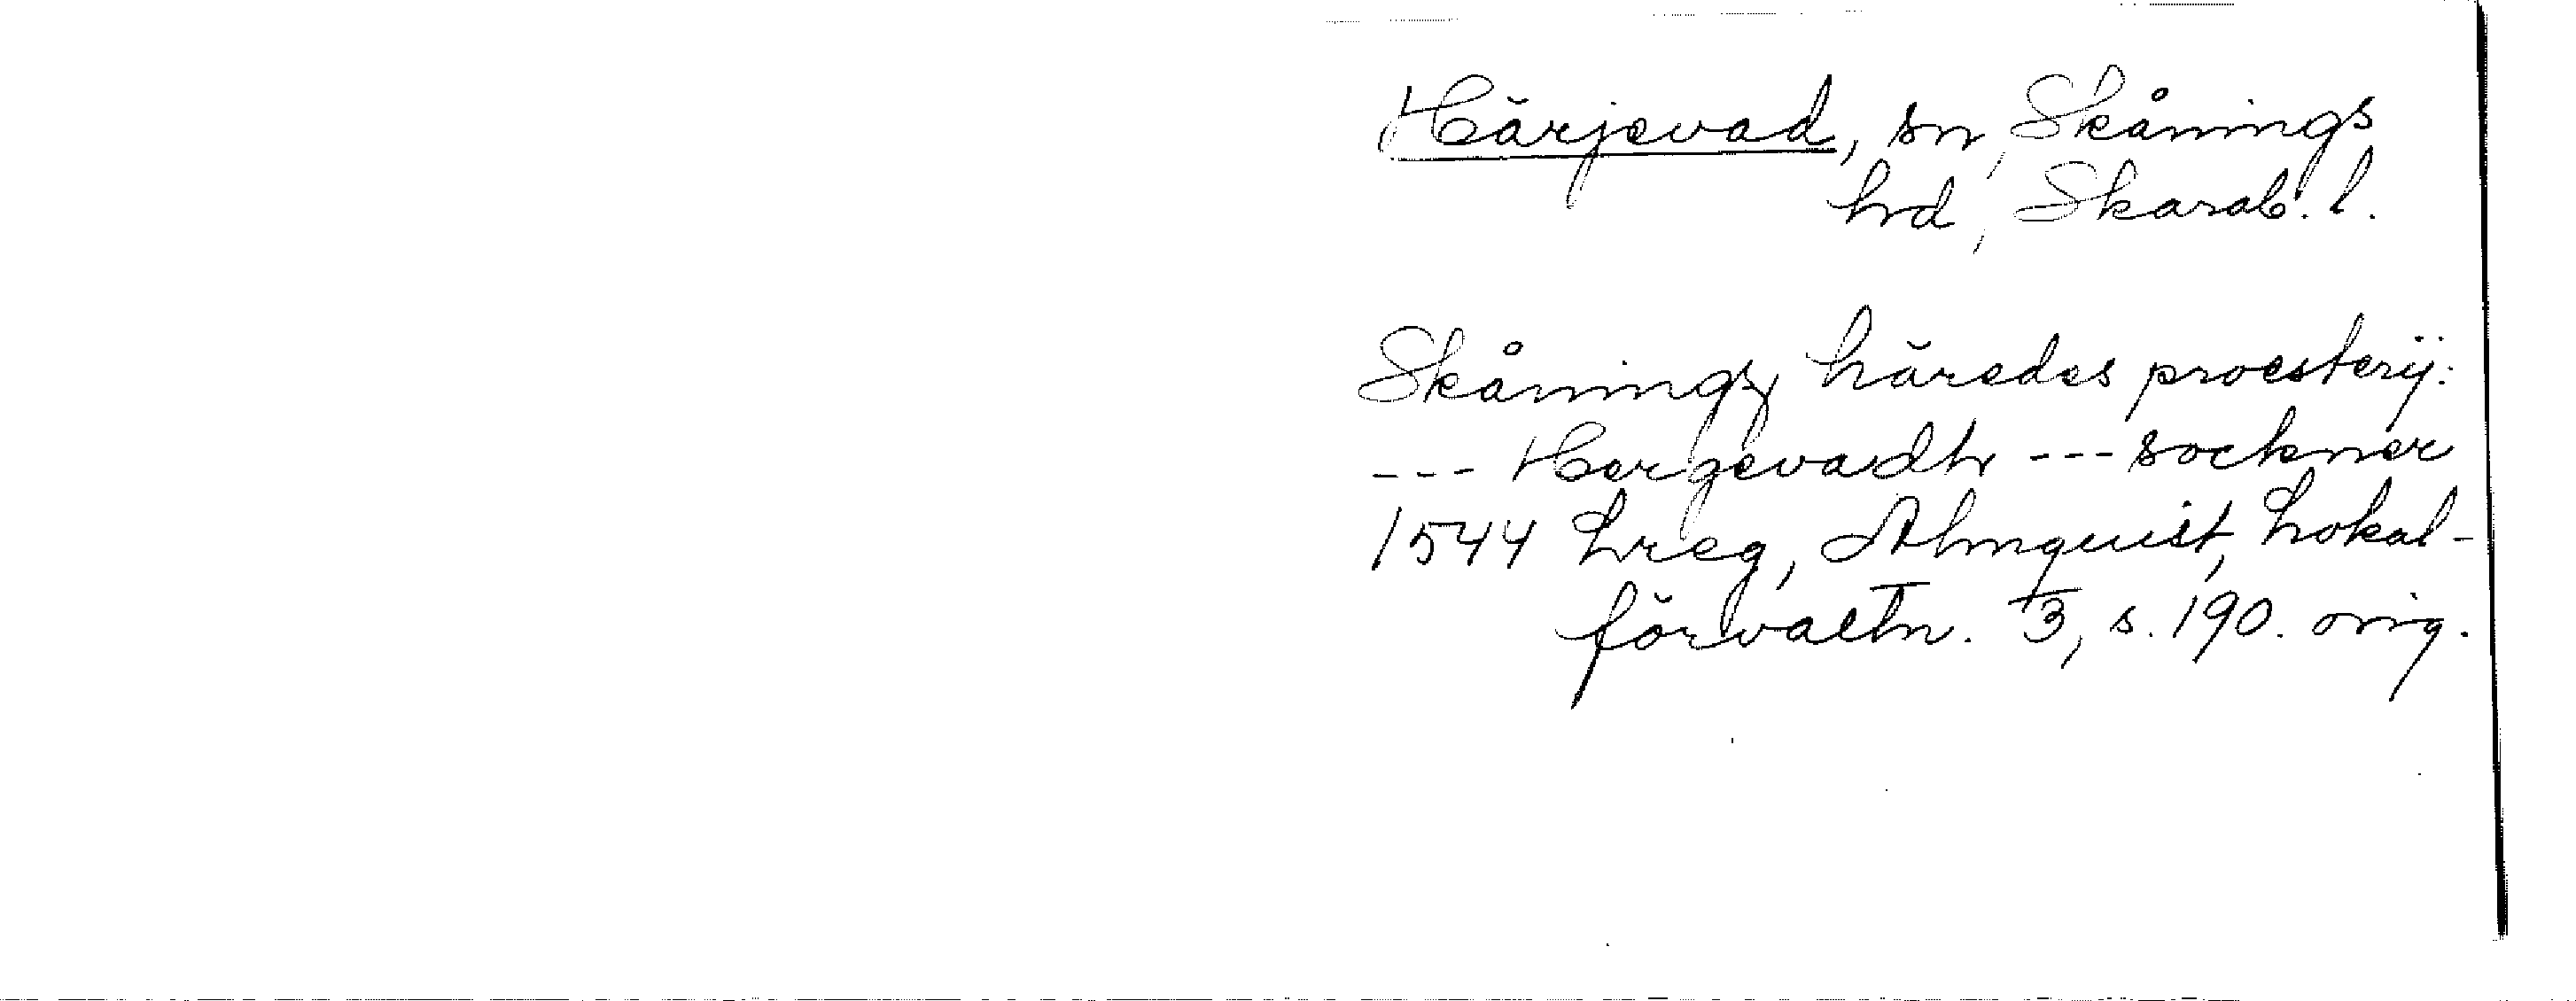 Härjevad, sn, Skånings
hd, Skarab. l.
Skåningx häredes proesterij:
--- Hergevadh --- sockner
1544 Lreg, Almquist, Lokal-
förvaltn. 3, s. 190. orig.